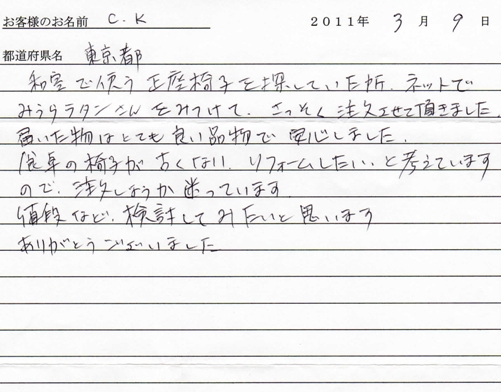 お客様のお名前 C.K 2011年 3月 9日
都道府県名 東京都
和室で使う正座椅子を探していた所、ネットで
みうらラタンさんをみつけて、さっそく注文させて頂きました。
届いた物はとても良い品物で安心しました。
食卓の椅子が古くなり、リフォームしたいと考えています
ので、注文しようか迷っています。
値段など、検討してみたいと思います
ありがとうございました